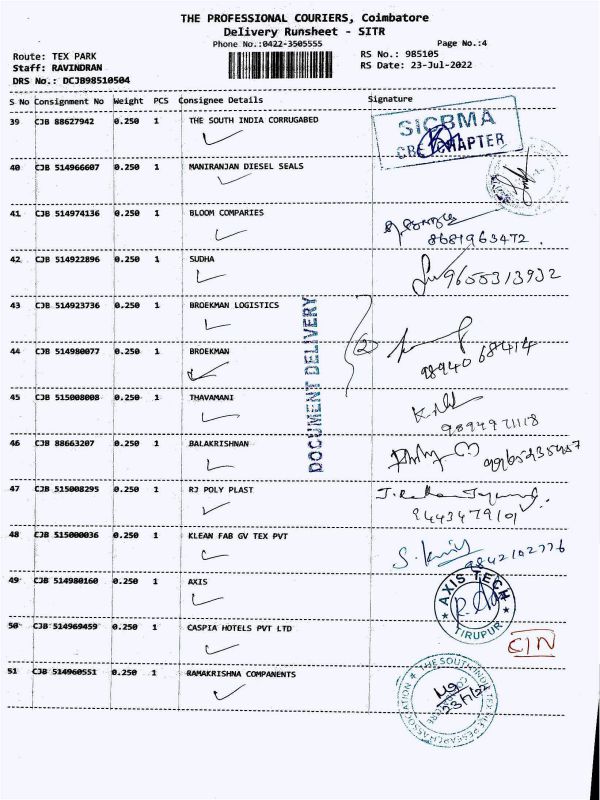 THE PROFESSIONAL COURIERS, Coimbatore
Delivery Runsheet - SITR
Phone No.:0422-3505555 Page No.:4
Route: TEX PARK RS No.: 985105
Staff: RAVINDRAN RS Date: 23-Jul-2022
DRS No.: DCJB98510504
S No Consignment No Weight PCS Consignee Details Signature
39 CJB 88627942 0.250 1 THE SOUTH INDIA CORRUGABED
SICBMA
CBE CHAPTER
40 CJB 514966607 0.250 1 MANIRANJAN DIESEL SEALS
41 CJB 514974136 0.250 1 BLOOM COMPARIES
8681963472.
42 CJB 514922896 0.250 1 SUDHA
9655313932
43 CJB 514923736 0.250 1 BROEKMAN LOGISTICS
44 CJB 514980077 0.250 1 BROEKMAN
2
98940 68414
DOCUMENT DELIVERY
45 CJB 515008008 0.250 1 THAVAMANI
9894971118
46 CJB 88663207 0.250 1 BALAKRISHNAN
47 CJB 515008295 0.250 1 RJ POLY PLAST
9443479101
48 CJB 515000036 0.250 1 KLEAN FAB GV TEX PVT
9842102776
49 CJB 514980160 0.250 1 AXIS
AXIS-TECH
TIRUPUR
50 CJB 514969459 0.250 1 CASPIA HOTELS PVT LTD
CIN
51 CJB 514960551 0.250 1 RAMAKRISHNA COMPANENTS
23/7/22